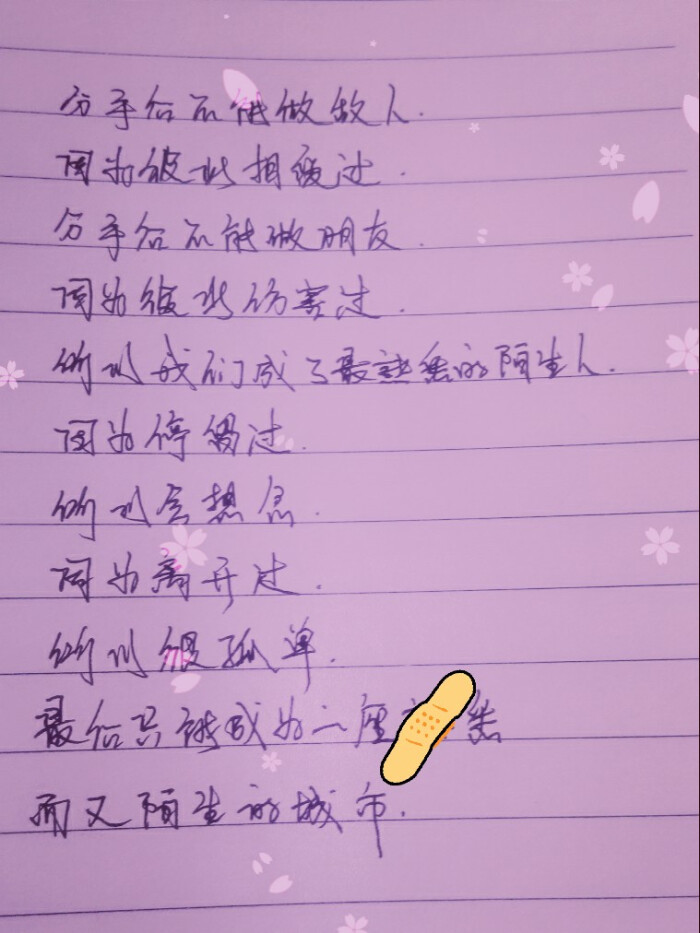 分手后不能做敌人.
因为彼此相爱过.
分手后不能做朋友.
因为彼此伤害过.
所以我们成了最熟悉的陌生人.
因为停留过.
所以会想念.
因为离开过.
所以很孤单.
最后只能成为一座 悉
而又陌生的城市.